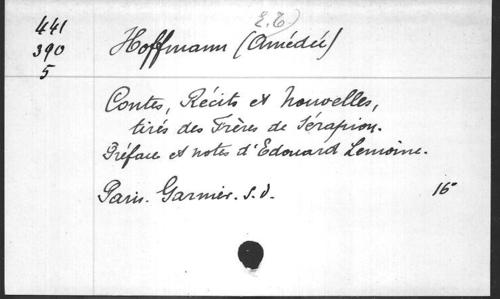 441
390
5
E.T
Hoffmann (Amédée)
Contes, Récits et Nouvelles,
tirés des Frères de Sérapion.
Préface et notes d'Edouard Lemoine.
Paris. Garnier. s.d. 16°